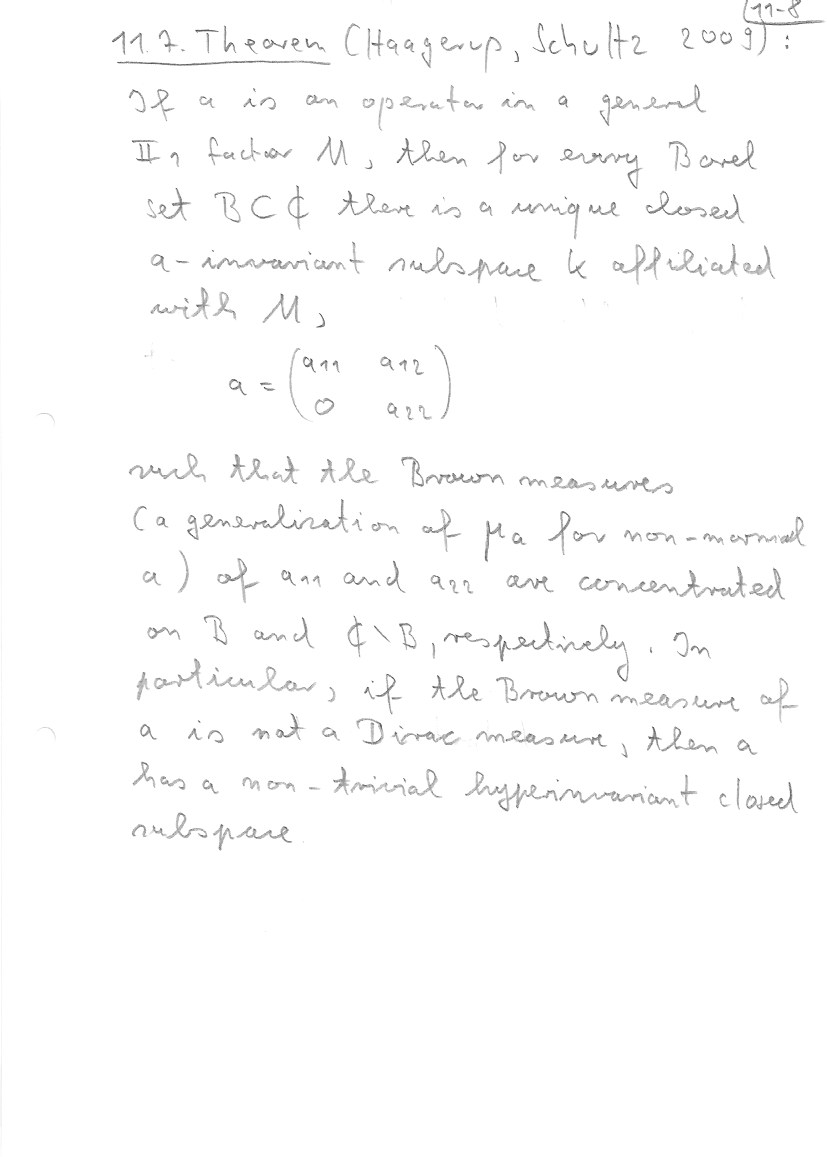 11-8
11.7. Theorem (Haagerup, Schultz 2009):
If a is an operator in a general
II₁ factor M, then for every Borel
set B ⊂ ℂ there is a unique closed
a-invariant subspace K affiliated
with M,
a = ( a₁₁ a₁₂
0 a₂₂ )
such that the Brown measures
(a generalization of μₐ for non-normal
a) of a₁₁ and a₂₂ are concentrated
on B and ℂ\B, respectively. In
particular, if the Brown measure of
a is not a Dirac measure, then a
has a non-trivial hyperinvariant closed
subspace